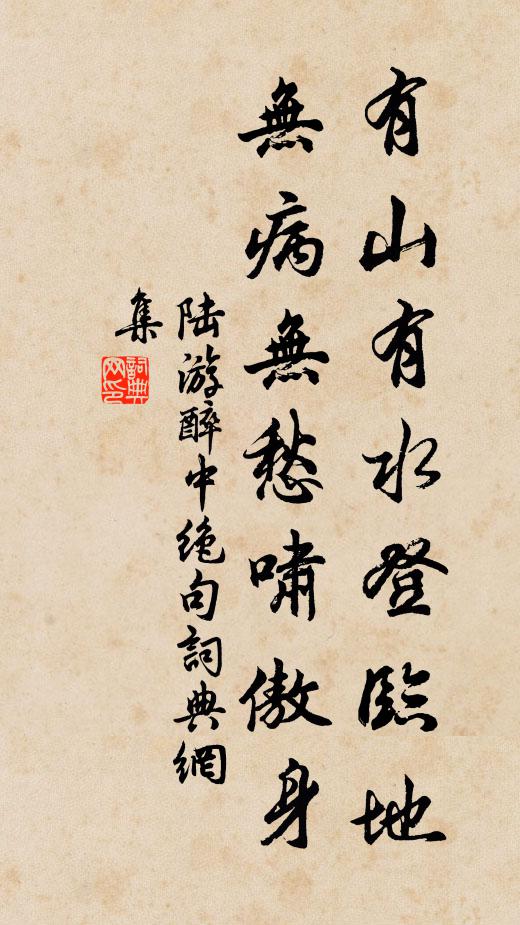 有山有水登臨地
無病無愁嘯傲身
陆游醉中绝句詞典網
集
詞典网印